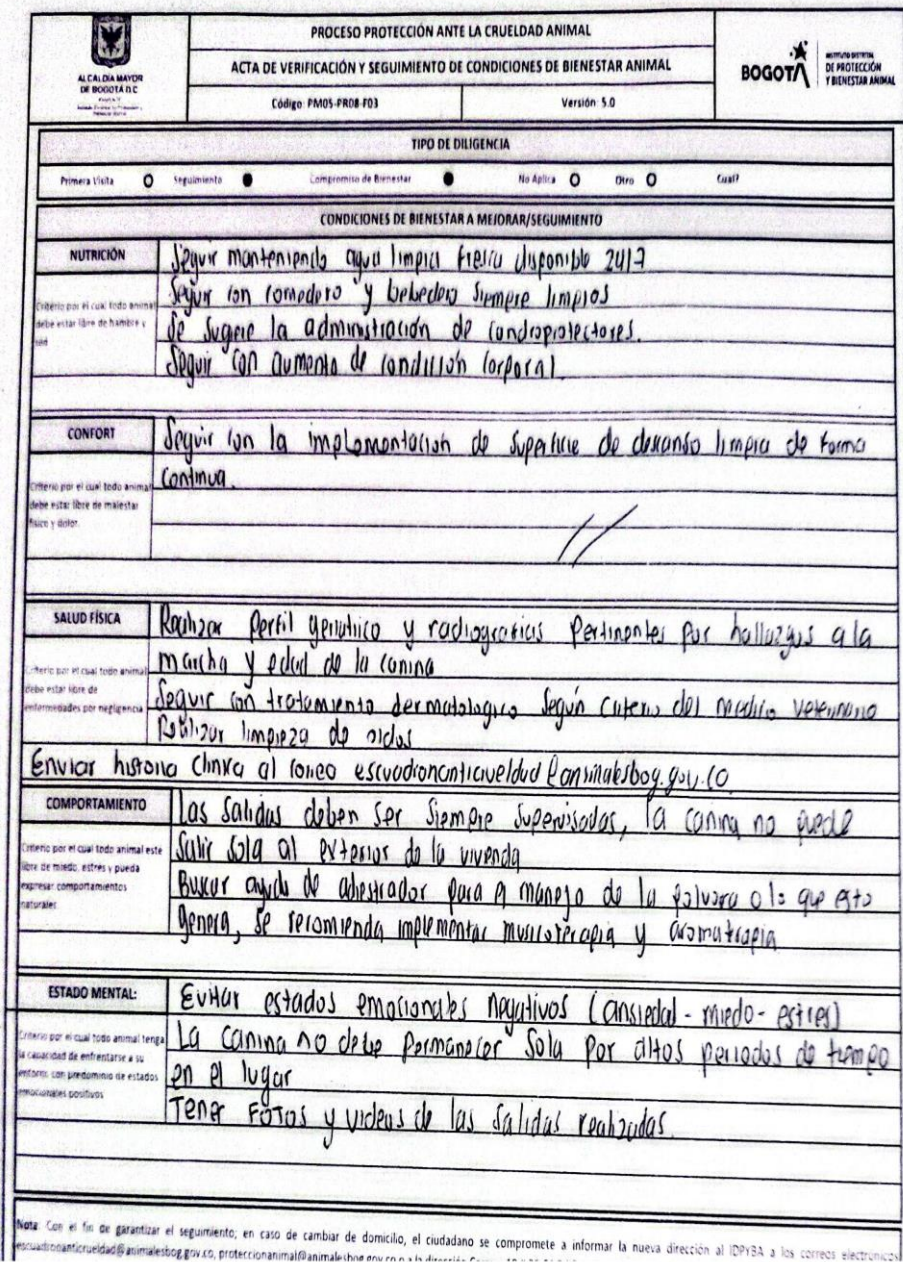 PROCESO PROTECCIÓN ANTE LA CRUELDAD ANIMAL
ACTA DE VERIFICACIÓN Y SEGUIMIENTO DE CONDICIONES DE BIENESTAR ANIMAL
Código: PM05-PR08-F03 Versión: 5.0
ALCALDÍA MAYOR
DE BOGOTÁ D.C.
BOGOTÁ
INSTITUTO DISTRITAL
DE PROTECCIÓN
Y BIENESTAR ANIMAL
TIPO DE DILIGENCIA
Primera Visita Seguimiento Compromiso de Bienestar No Aplica Otro Cual?
CONDICIONES DE BIENESTAR A MEJORAR/SEGUIMIENTO
NUTRICIÓN
Criterio por el cual todo animal
debe estar libre de hambre y
sed
Seguir manteniendo agua limpia fresca disponible 24/7
Seguir con comedero y bebedero siempre limpios
Se sugiere la administración de condroprotectores.
Seguir con aumento de condición corporal.
CONFORT
Criterio por el cual todo animal
debe estar libre de malestar
físico y dolor.
Seguir con la implementación de superficie de descanso limpia de forma
continua.
SALUD FÍSICA
Criterio por el cual todo animal
debe estar libre de
enfermedades por negligencia
Realizar perfil geriatrico y radiografias pertinentes por hallazgos a la
marcha y edad de la canina
Seguir con tratamiento dermatologico según criterio del medico veterinario
Realizar limpieza de oidos
Enviar historia clinica al correo escuadronanticrueldad@animalesbog.gov.co
COMPORTAMIENTO
Criterio por el cual todo animal este
libre de miedo, estres y pueda
expresar comportamientos
naturales
Las salidas deben ser siempre supervisadas, la canina no puede
salir sola al exterior de la vivienda
Buscar ayuda de adiestrador para el manejo de la polvora o lo que esto
genera, se recomienda implementar musicoterapia y aromaterapia
ESTADO MENTAL:
Criterio por el cual todo animal tenga
la capacidad de enfrentarse a su
entorno, con predominio de estados
emocionales positivos
Evitar estados emocionales negativos (ansiedad - miedo - estres)
La canina no debe permanecer sola por altos periodos de tiempo
en el lugar
Tener FOTOS y videos de las salidas realizadas.
Nota: Con el fin de garantizar el seguimiento; en caso de cambiar de domicilio, el ciudadano se compromete a informar la nueva dirección al IDPYBA a los correos electrónicos
escuadronanticrueldad@animalesbog.gov.co, proteccionanimal@animalesbog.gov.co o a la dirección